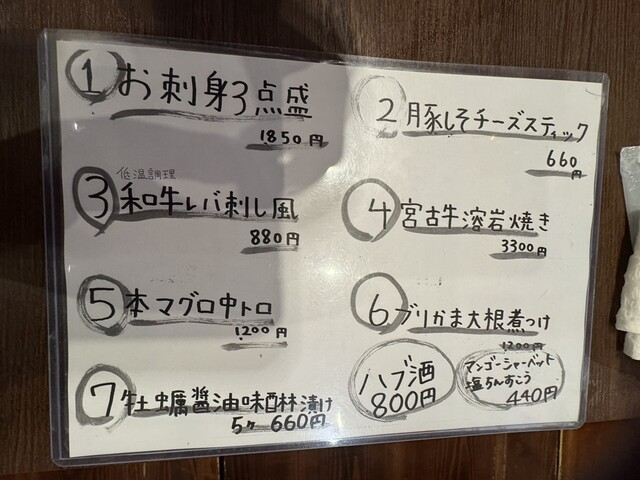 ① お刺身3点盛
1850円
② 豚しそチーズスティック
660円
低温調理
③ 和牛レバ刺し風
880円
④ 宮古牛溶岩焼き
3300円
⑤ 本マグロ中トロ
1200円
⑥ ブリかま大根煮つけ
1200円
⑦ 牡蠣醤油味醂漬け
5ヶ 660円
ハブ酒
800円
マンゴーシャーベット
塩ちんすこう
440円